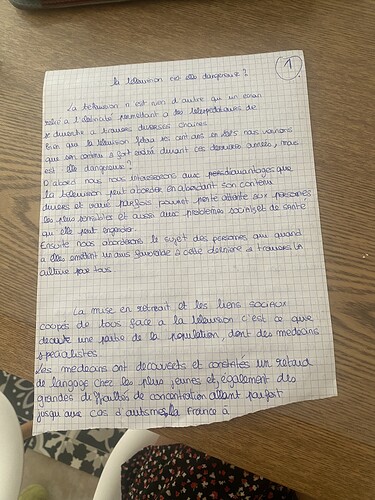 1
la télévision est elle dangereuse ?
La télévision n'est rien d'autre qu'un écran
relié a l'éléctricité permettant a des télespectateurs de
se divertir a travers diverses chaines
Bien que la télévision fetera ses cent ans en nous verrons
que son contenu a fort évolué durant ces dernieres années, mais
est elle dangereuse ?
D'abord nous nous interesserons aux que
la télévision peut aborder en abordant son contenu
et varié parfois pouvant porter atteinte aux personnes
les plus sensibles et aussi aux problèmes sociaux de santé
qu'elle peut engendrer.
Ensuite nous aborderons le sujet des personnes qui quand
a elles émettent un avis favorable à cette dernière a travers la
culture par tous
La mise en retrait et les liens sociaux
coupés de tous face a la télévision c'est ce que
une partie de la population, dont des medecins
spécialistes.
Les medecins ont découverts et constatés un retard
de langage chez les plus jeunes et également des
grandes difficultés de concentration allant parfois
jusqu'aux cas d'autisme, la France à